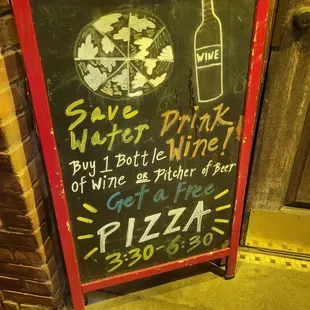 WINE
Save
Water Drink
Wine!
Buy 1 Bottle
of Wine OR Pitcher of Beer
Get a Free
PIZZA
3:30-6:30